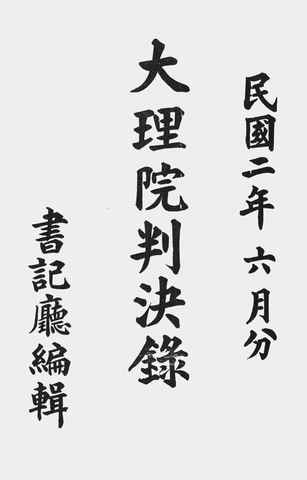 民國二年六月分
大理院判決錄
書記廳編輯